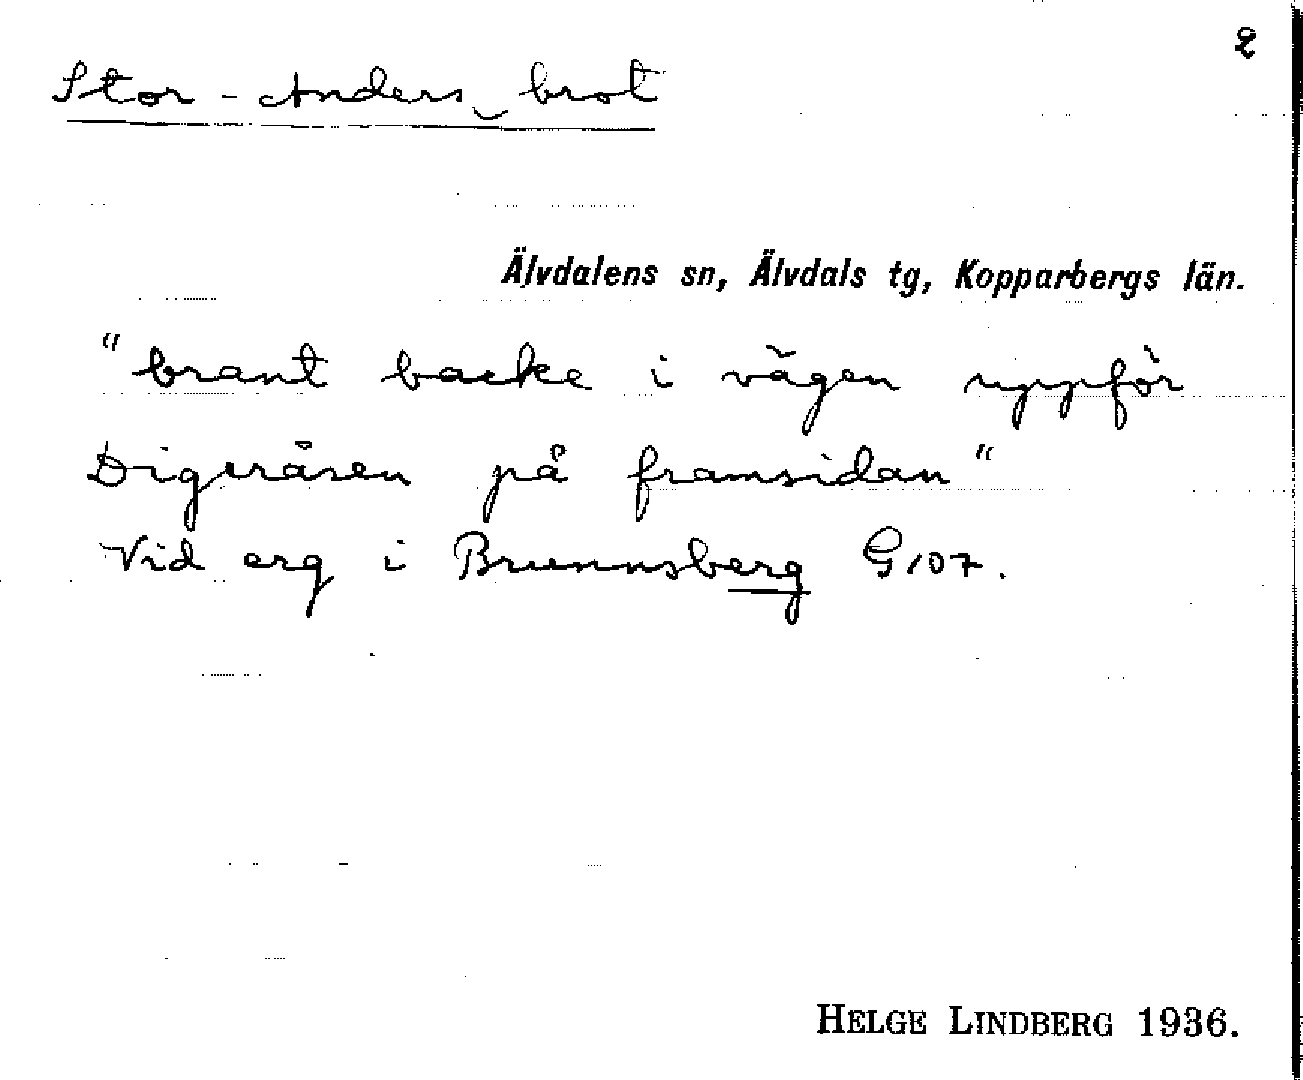 2
Stor-Anders‿brot
Älvdalens sn, Älvdals tg, Kopparbergs län.
"brant backe i vägen uppför
Digeråsen på framsidan"
Vid erg i Brunnsberg G107.
HELGE LINDBERG 1936.